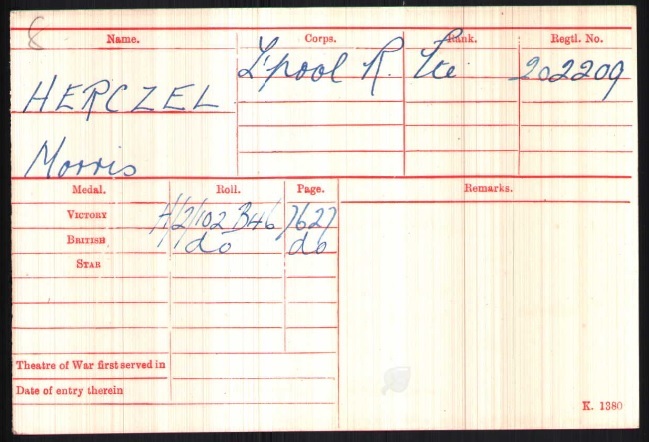 8
Name. Corps. Rank. Regtl. No.
L'pool R. Pte 202209
HERCZEL
Morris
Medal. Roll. Page. Remarks.
VICTORY H/2/102 B46 7627
BRITISH do do
STAR
Theatre of War first served in
Date of entry therein
K. 1380